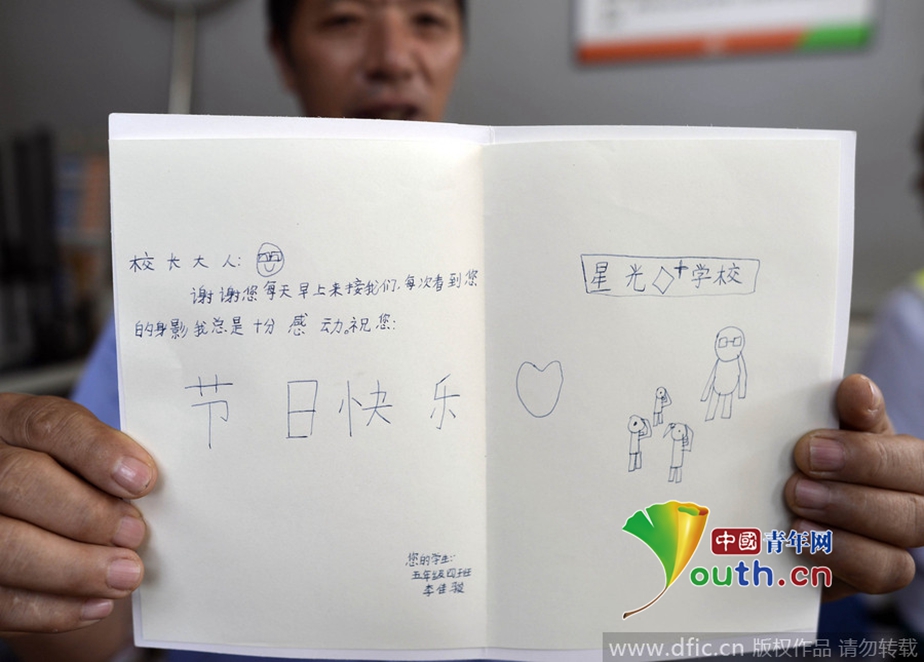 校长大人:
谢谢您每天早上来接我们,每次看到您
的身影我总是十分感动。祝您:
节日快乐
您的学生:
五年级四班
李佳骏
星光学校
中國青年网
outh.cn
www.dfic.cn 版权作品 请勿转载